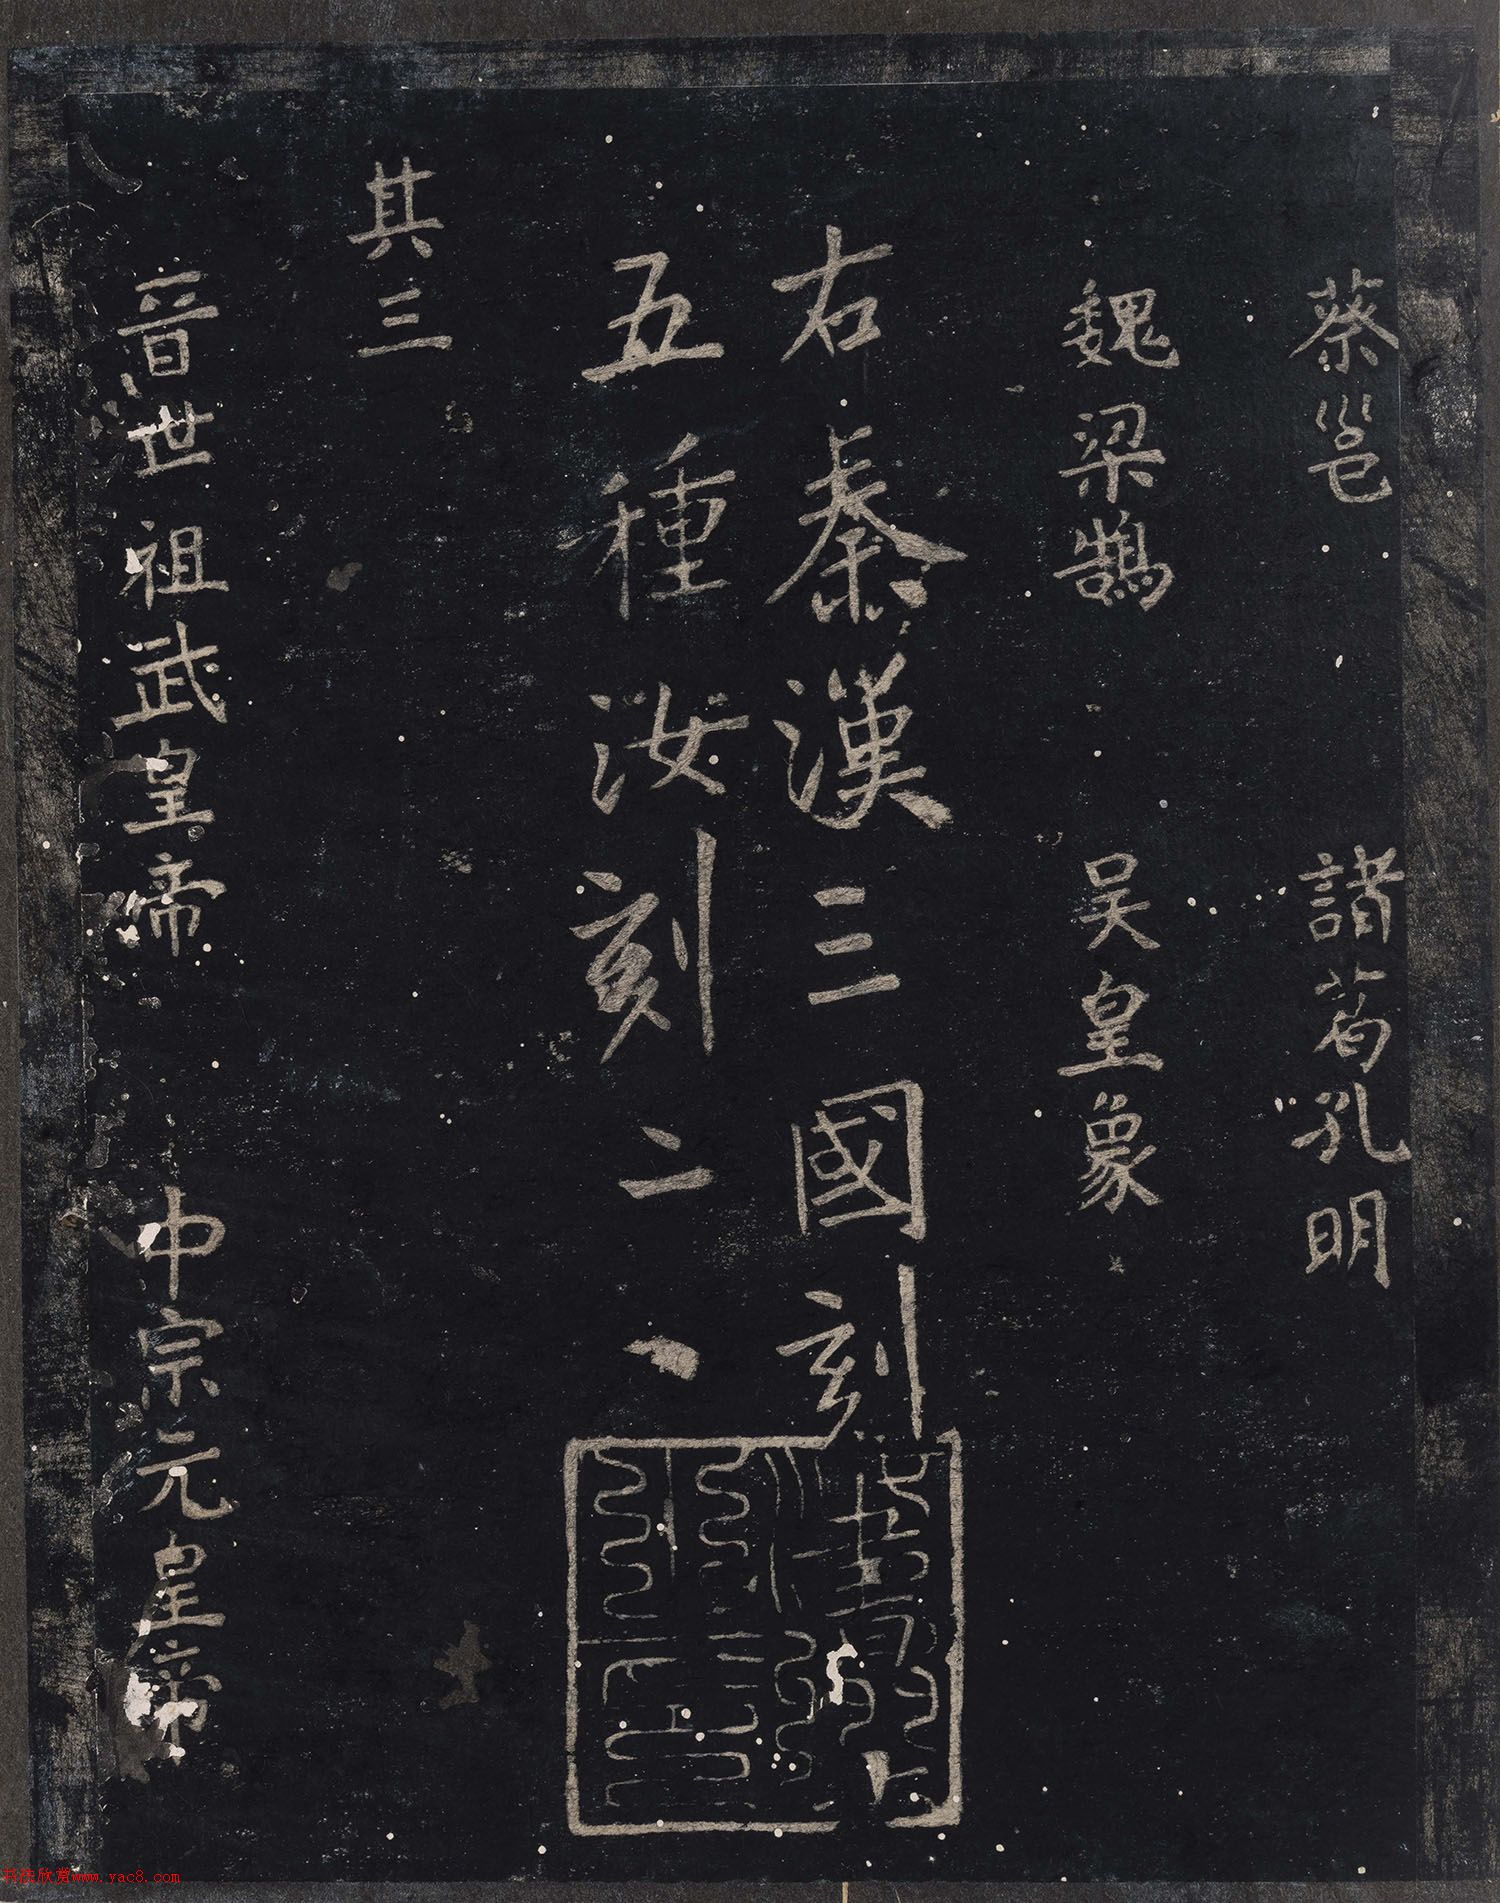 蔡邕 諸葛孔明
魏梁鵠 吴皇象
右秦漢三國刻
五種汝刻二
其三
晋世祖武皇帝 中宗元皇帝
书法欣赏www.yac8.com